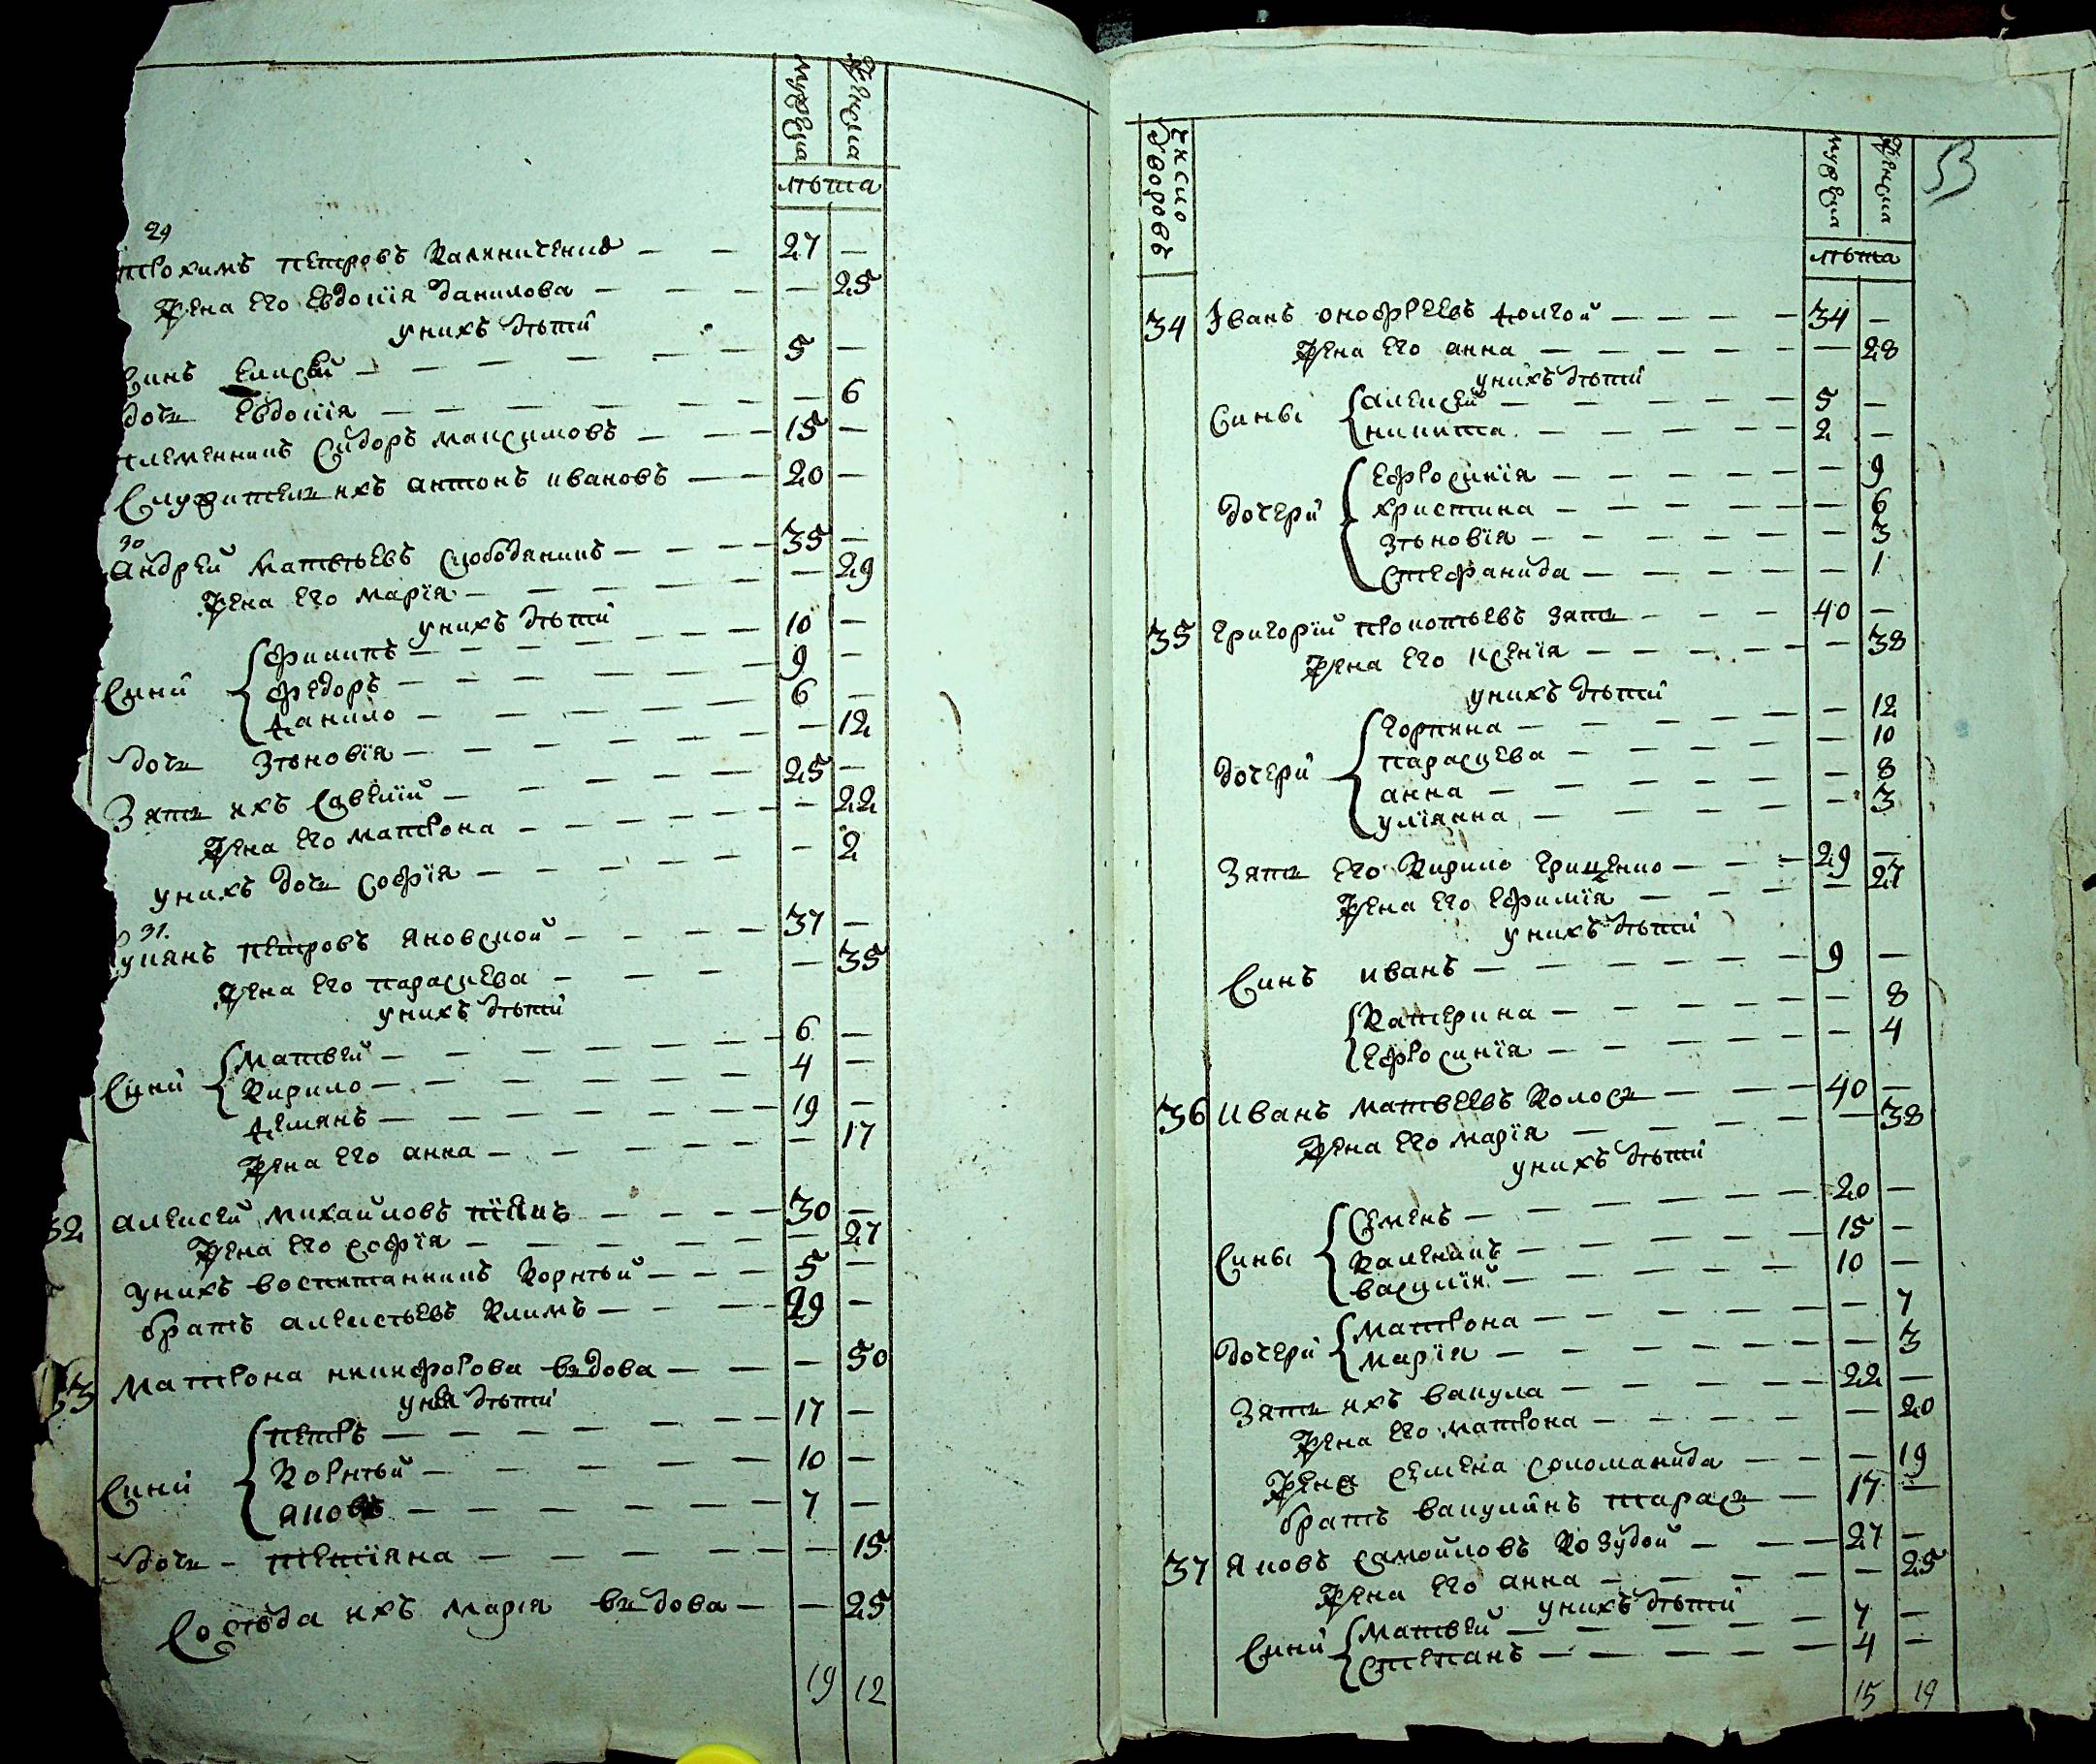 мужеска женска
лѣта
29
трохимъ петровъ Калениченко — — 27 —
жена его Евдокія данилова — — — — 25
унихъ дѣти
Синъ Елисѣй — — — — — 5 —
дочь Евдокія — — — — — — 6
племенникъ Сидоръ максимовъ — — — 15 —
Служитель ихъ антонъ ивановъ — — 20 —
30
андрей матвѣевъ слободяникъ — — — 35 —
жена его марія — — — — — 29
унихъ дѣти
Сини
филипъ — — — — — — 10 —
федоръ — — — — — 9 —
данило — — — — — 6 —
дочь Зѣновія — — — — — — 12
Зять ихъ савелий — — — — — 25 —
жена его матрона — — — — — — 22
унихъ дочь софія — — — — — — 2
31.
петровъ яновской — — — 37 —
жена его параскева — — — — 35
унихъ дѣти
Сини
Матвѣй — — — — — 6 —
Кирило — — — — — 4 —
демянъ — — — — — 19 —
жена его анна — — — — — 17
32 алексѣй михайловъ — — — 30 —
жена его софія — — — — — — 27
унихъ воспитанникъ Корнѣй — — — 5 —
братъ алексѣевъ Климъ — — — 29 —
33 матрона никифорова вьдова — — — 50
унея дѣти
Сини
петръ — — — — — 17 —
Корнѣй — — — — — 10 —
яковъ — — — — — 7 —
дочь — тетіяна — — — — — — 15
Сосѣда ихъ марія вьдова — — 25
19 12
число дворовъ
мужеска женска
53
лѣта
34 Іванъ онофреевъ долгой — — — — 34 —
жена его анна — — — — — — 28
унихъ дѣти
Сины
алексѣй — — — — — 5 —
никита — — — — — 2 —
дочери
Ефросинія — — — — — 9
христина — — — — — — 6
зѣновія — — — — — — 3
стефанида — — — — — 1
35 григорій прокопѣевъ зать — — — 40 —
жена его ксенія — — — — — 38
унихъ дѣти
дочери
горпина — — — — — — 12
параскева — — — — — 10
анна — — — — — — 8
уліянна — — — — — — 3
Зять его Кирило гриценко — — — 29 —
жена его Ефимія — — — — 27
унихъ дѣти
Синъ иванъ — — — — — — 9 —
Катерина — — — — — — 8
Ефросинія — — — — — 4
36 иванъ матвеевъ Колось — — — 40 —
жена его марія — — — — — 38
унихъ дѣти
Сины
семенъ — — — — — — 20 —
Каленикъ — — — — — 15 —
василій — — — — — 10 —
дочери
матрона — — — — — — 7
марія — — — — — — 3
Зять ихъ вакула — — — — — 22 —
жена его матрона — — — — — 20
жена семена соломанида — — — 19
братъ вакулинъ тарась — 17 —
37 яковъ самойловъ — — — 27 —
жена его анна — — — — — 25
унихъ дѣти
Сини
матвей — — — — — 7 —
степанъ — — — — — 4 —
15 19